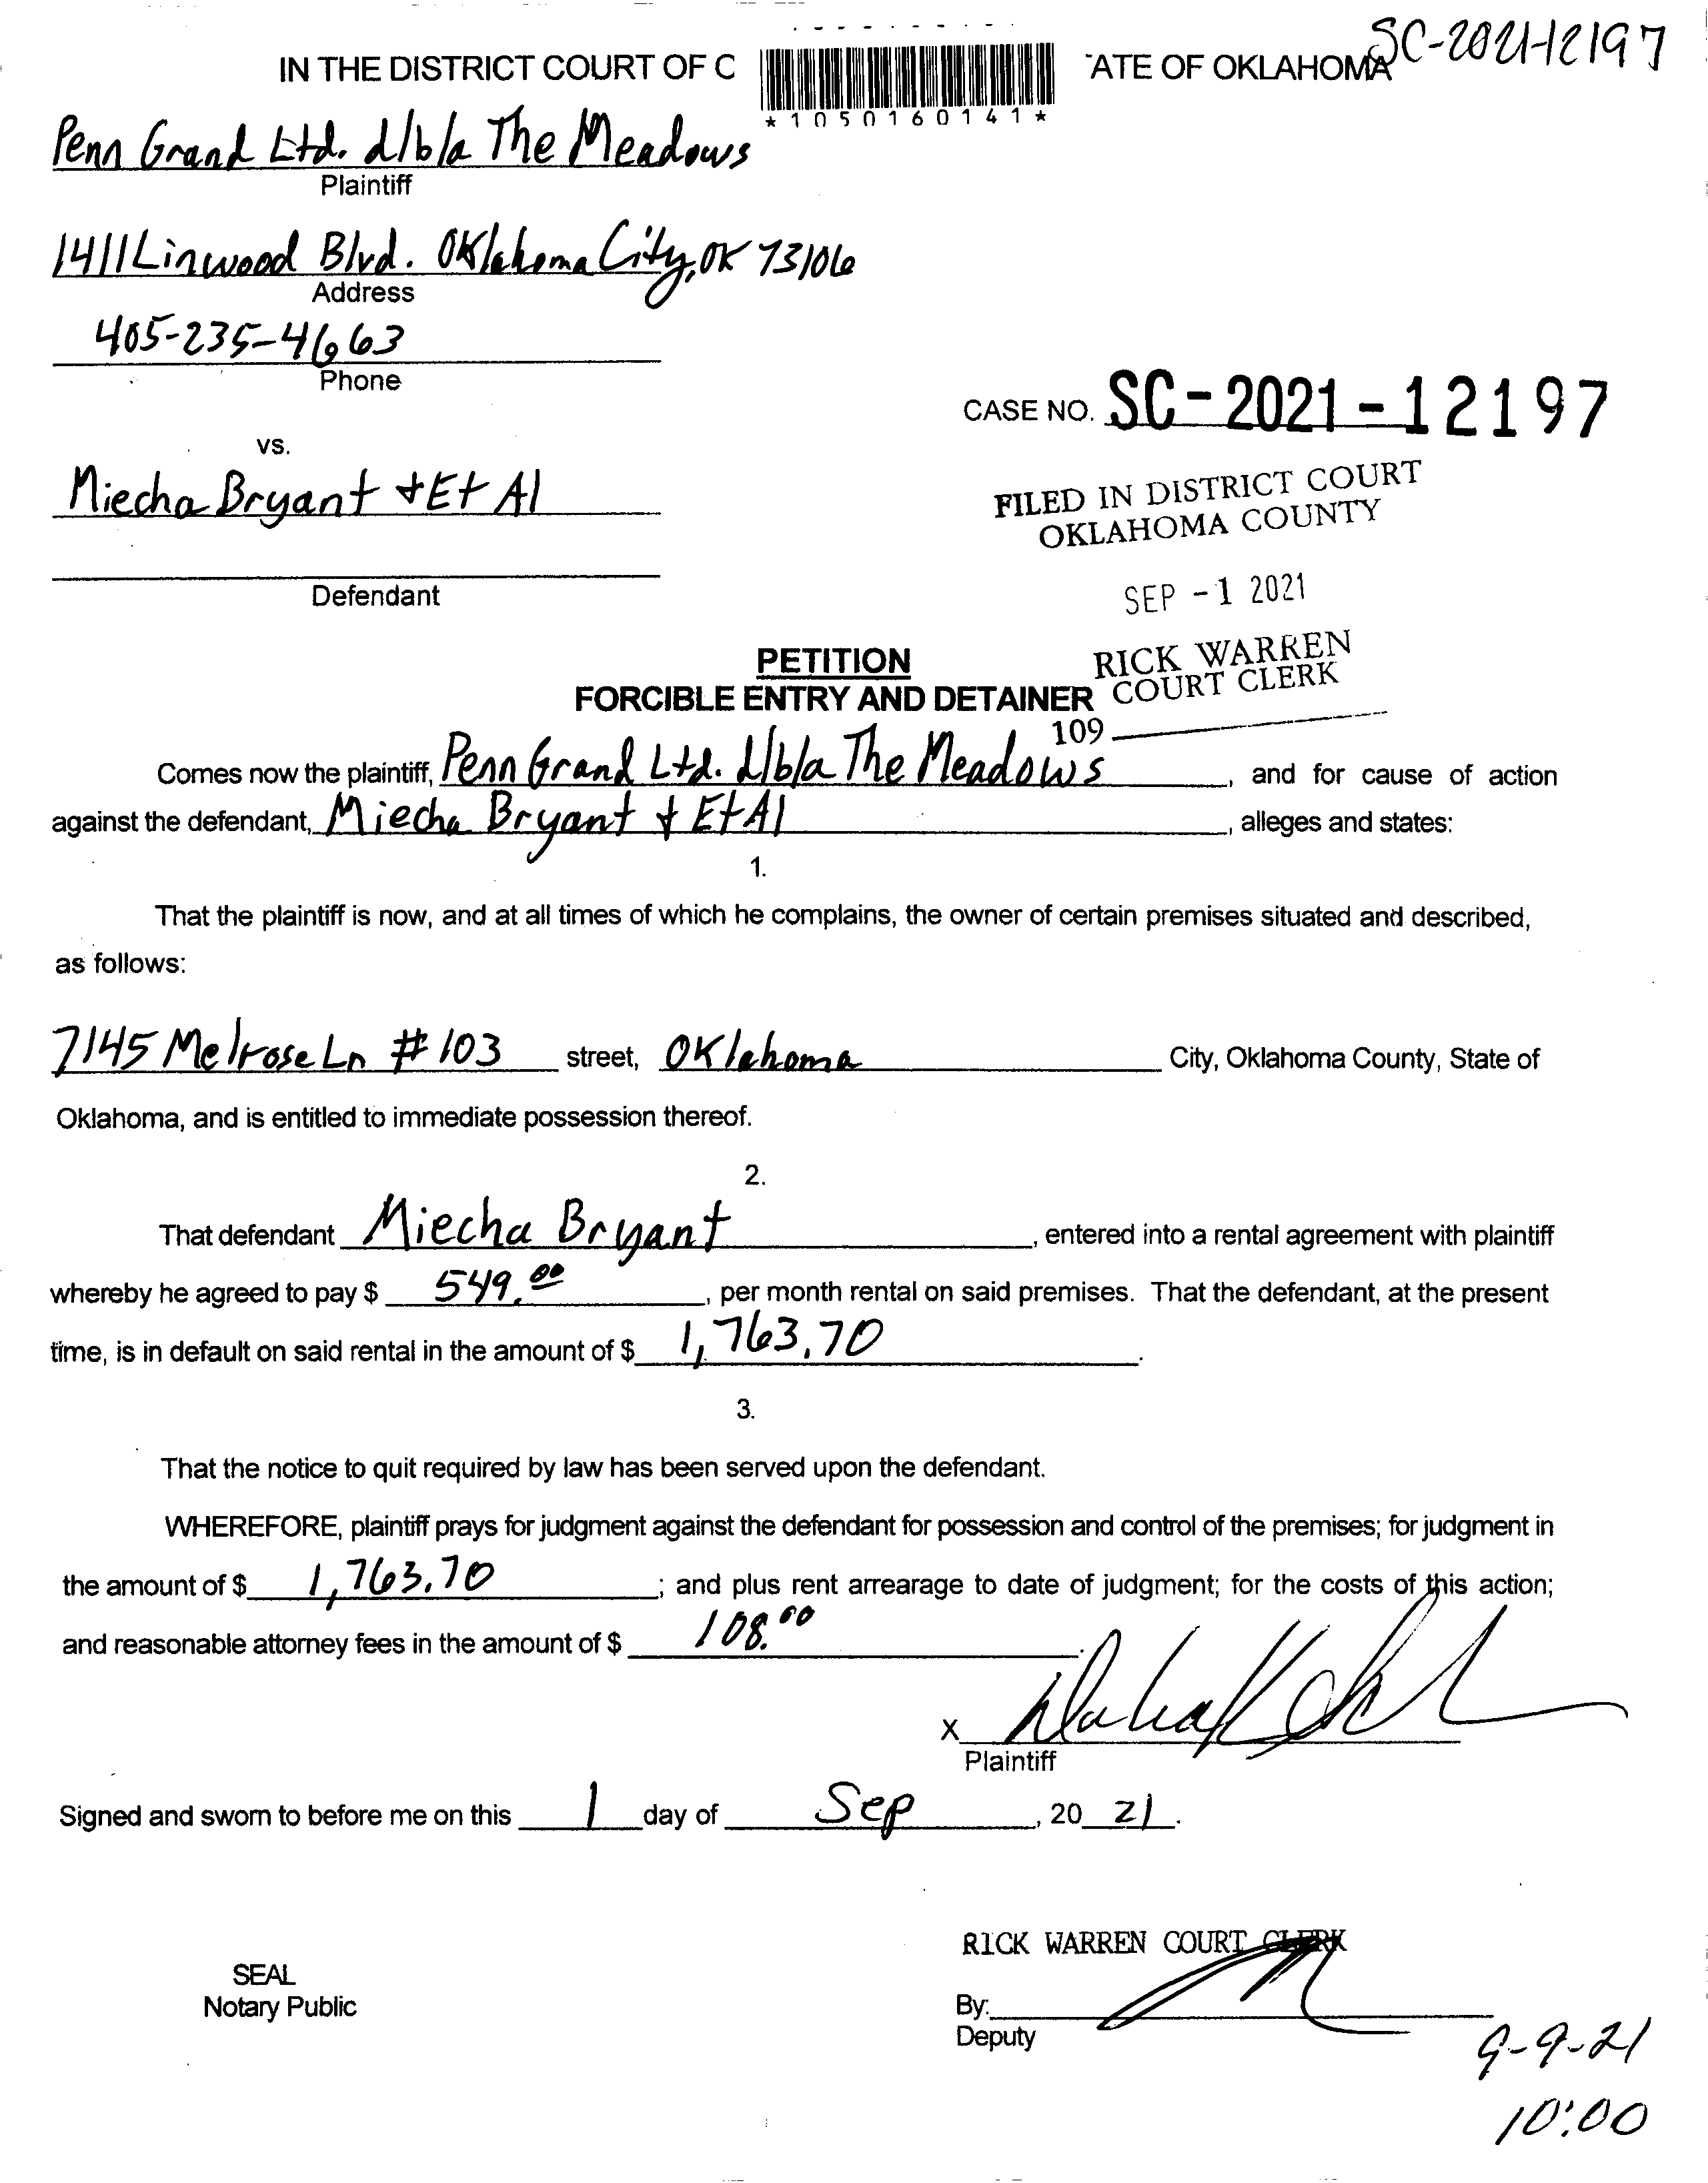 SC-2021-12197
IN THE DISTRICT COURT OF C ATE OF OKLAHOMA
*1050160141*
Penn Grand Ltd. d/b/a The Meadows
Plaintiff
1411 Linwood Blvd. Oklahoma City, OK 73106
Address
405-235-4663
Phone
CASE NO. SC-2021-12197
vs.
Miecha Bryant + Et Al
FILED IN DISTRICT COURT
OKLAHOMA COUNTY
Defendant
SEP -1 2021
PETITION
RICK WARREN
COURT CLERK
FORCIBLE ENTRY AND DETAINER
109
Comes now the plaintiff, Penn Grand Ltd. d/b/a The Meadows, and for cause of action
against the defendant, Miecha Bryant + Et Al, alleges and states:
1.
That the plaintiff is now, and at all times of which he complains, the owner of certain premises situated and described,
as follows:
7145 Melrose Ln #103 street, Oklahoma City, Oklahoma County, State of
Oklahoma, and is entitled to immediate possession thereof.
2.
That defendant Miecha Bryant, entered into a rental agreement with plaintiff
whereby he agreed to pay $ 549.00, per month rental on said premises. That the defendant, at the present
time, is in default on said rental in the amount of $ 1,763.70.
3.
That the notice to quit required by law has been served upon the defendant.
WHEREFORE, plaintiff prays for judgment against the defendant for possession and control of the premises; for judgment in
the amount of $ 1,763.70; and plus rent arrearage to date of judgment; for the costs of this action;
and reasonable attorney fees in the amount of $ 108.00.
X
Plaintiff
Signed and sworn to before me on this 1 day of Sep, 20 21.
RICK WARREN COURT CLERK
SEAL
Notary Public
By:
Deputy
9-9-21
10:00